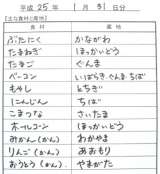 平成 25年 1月 31日分
【主な食材と産地】
食材 産地
ぶたにく かながわ
たまねぎ ほっかいどう
たまご ぐんま
ベーコン いばらき ぐんま ちば
もやし とちぎ
にんじん ちば
こまつな さいたま
ホールコーン ほっかいどう
みかん(かん) わかやま
りんご(かん) あおもり
おうとう(かん) やまがた